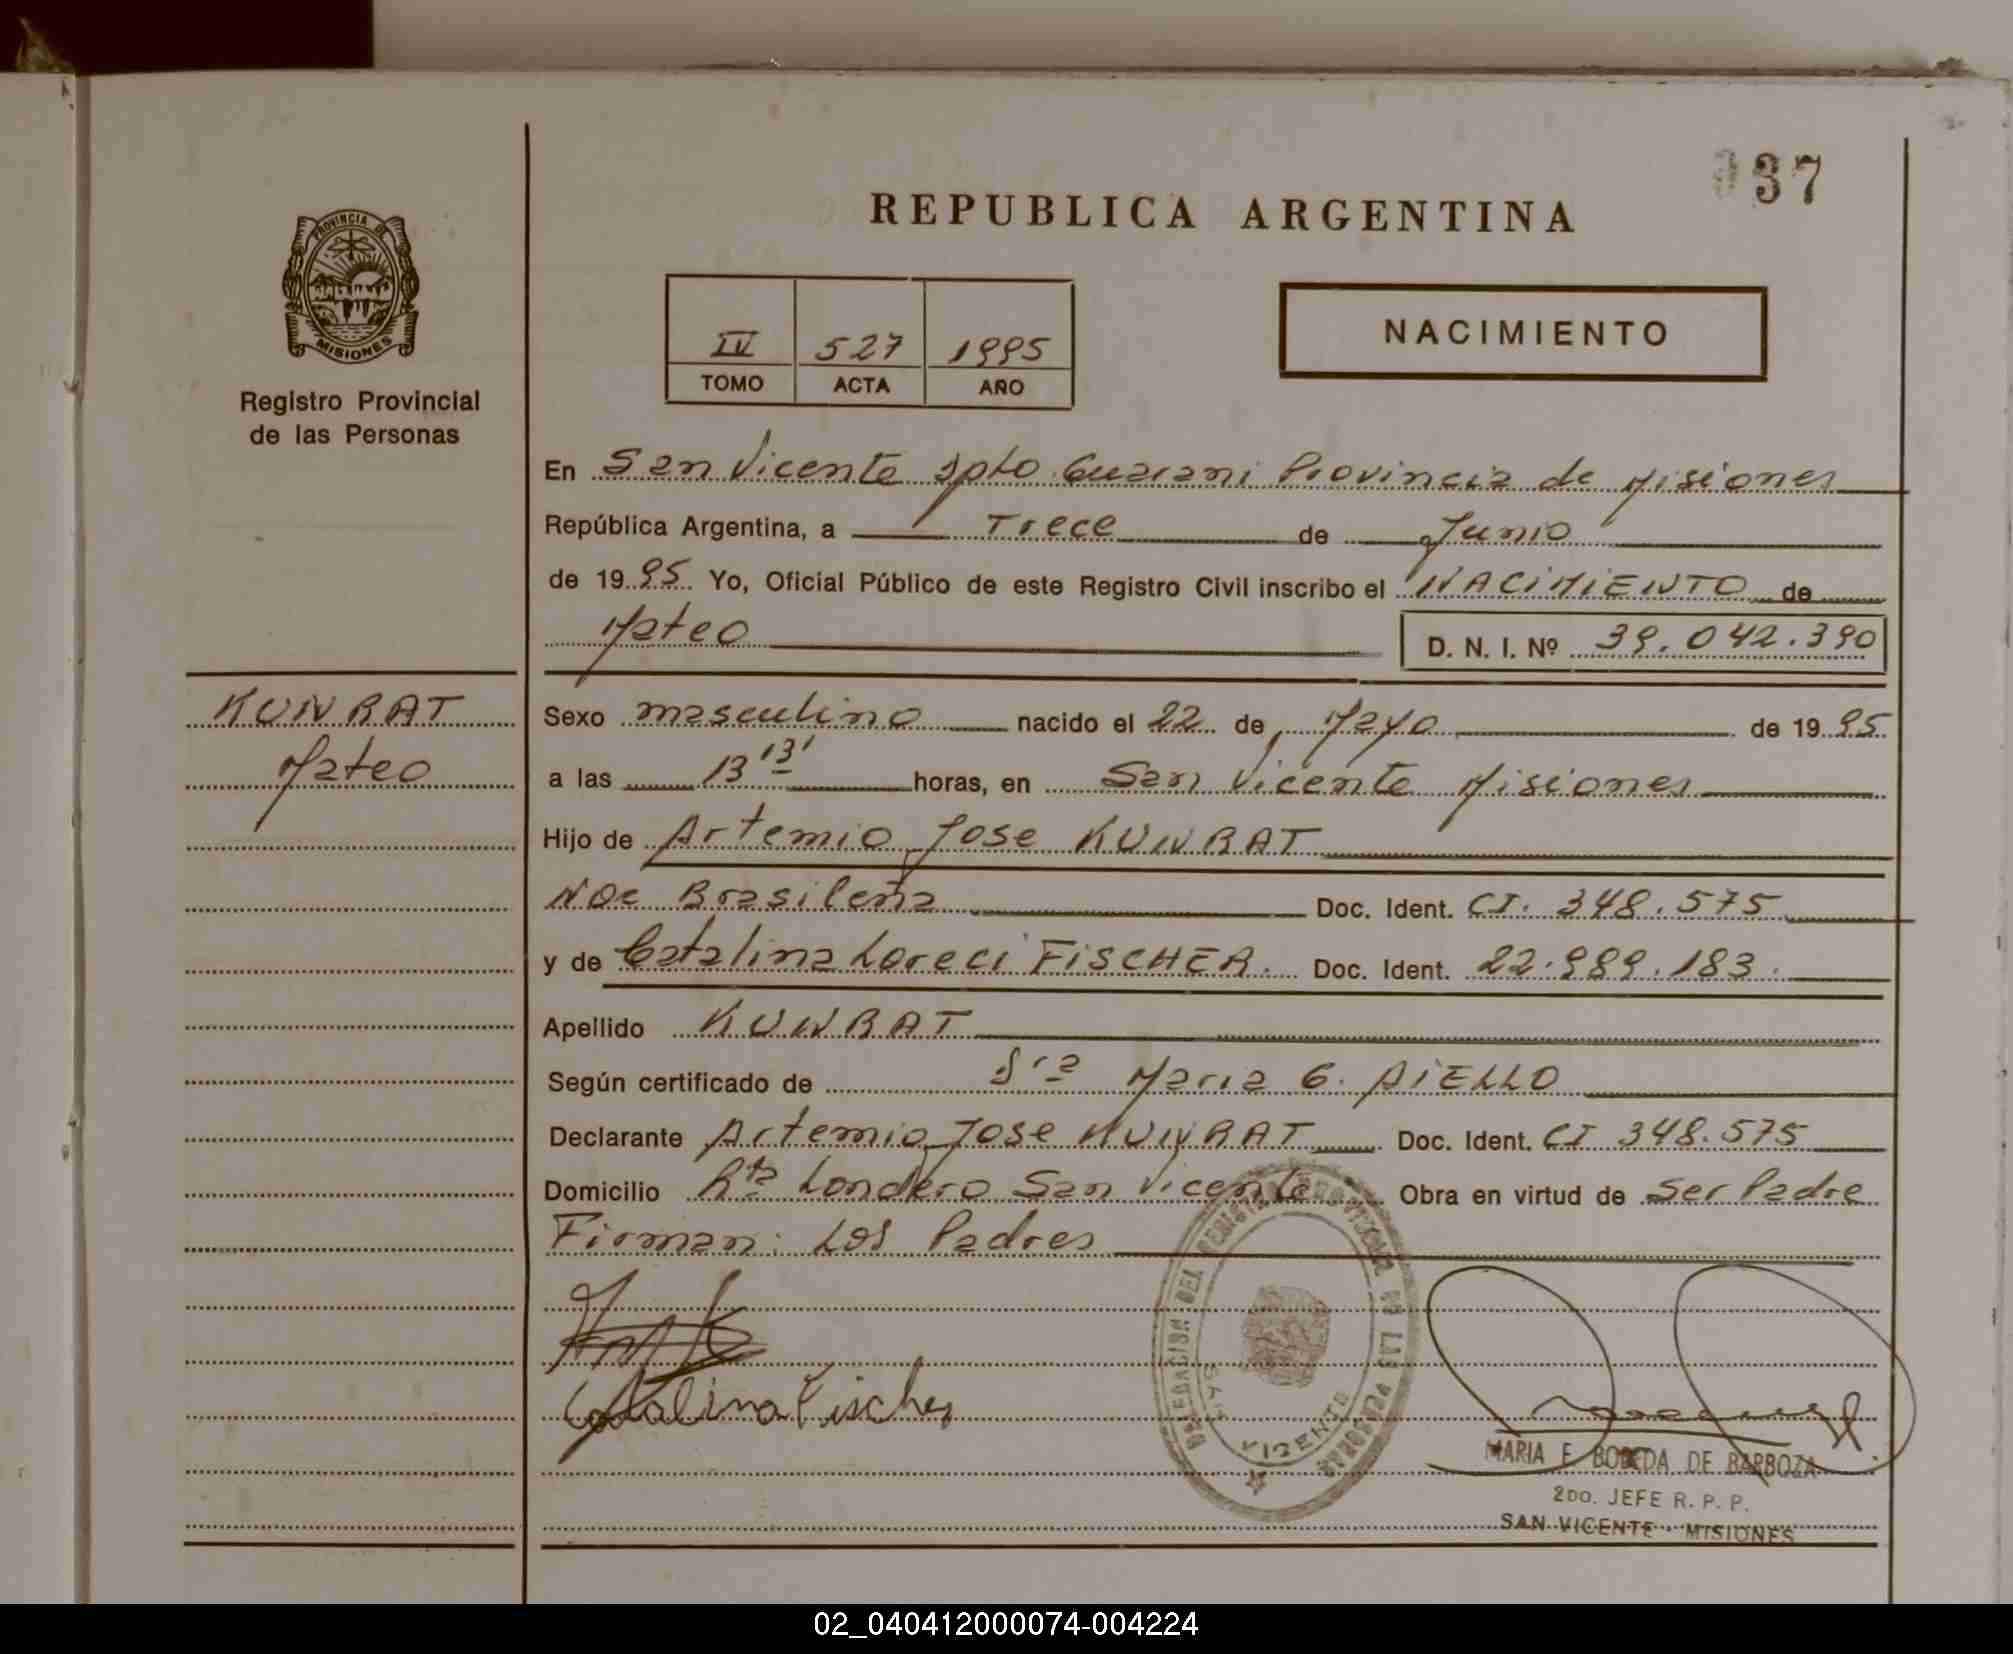 037
REPUBLICA ARGENTINA
PROVINCIA DE
MISIONES
Registro Provincial
de las Personas
IV 527 1995
TOMO ACTA AÑO
NACIMIENTO
En San Vicente Dpto. Guarani Provincia de Misiones
República Argentina, a Trece de Junio
de 1995 Yo, Oficial Público de este Registro Civil inscribo el NACIMIENTO de
Mateo D. N. I. Nº 39.042.390
KUNRAT
Mateo
Sexo masculino nacido el 22 de Mayo de 1995
a las 13 13' horas, en San Vicente Misiones
Hijo de Artemio Jose KUNRAT
Nac Brasileña Doc. Ident. CI. 348.575
y de Catalina Loreci FISCHER. Doc. Ident. 22.989.183.
Apellido KUNRAT
Según certificado de Dra Maria G. AIELLO
Declarante Artemio Jose KUNRAT Doc. Ident. CI 348.575
Domicilio Rta Londero San Vicente Obra en virtud de Ser Padre
Firman: Los Padres
Catalina Fischer
DELEGACION DEL REGISTRO PROVINCIAL DE LAS PERSONAS
SAN VICENTE
MARIA E. BOBEDA DE BARBOZA
2DO. JEFE R. P. P.
SAN VICENTE - MISIONES
02_040412000074-004224